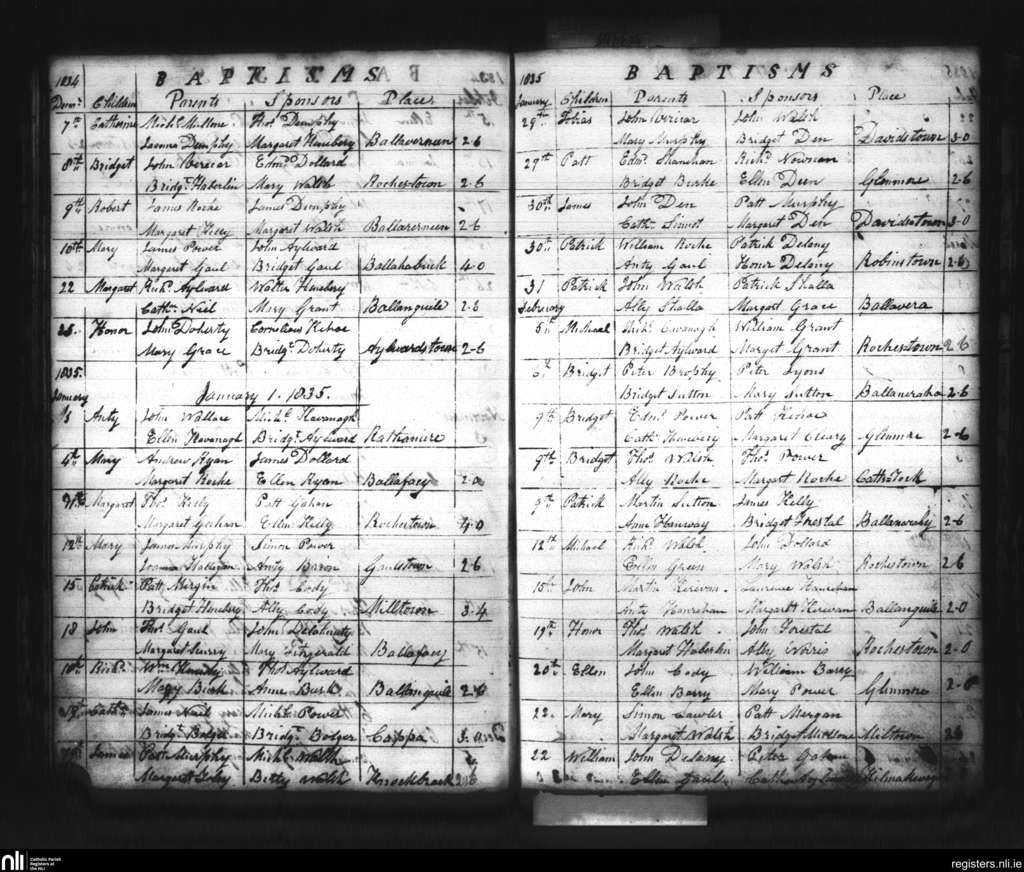 1834 BAPTISMS
Decmr. Children Parents Sponsors Place
7th Catharine Michl. Mullone Thos. Dunphy
Joanna Dunphy Margaret Ballaverneen 2-6
8th Bridget John Edmd. Dollard
Bridgt. Haberlin Mary Walsh Rochestown 2-6
9th Robert James Roche James Dunphy
Margaret Kelly Margaret Walsh Ballaverneen 2-6
10th Mary James Power John Aylward
Margaret Gaul Bridget Gaul Ballahabrick 4-0
22 Margaret Richd. Aylward Walter
Cathn. Neil Mary Grant Ballanguile 2-8
25 Honor John Doherty Cornelius Kehoe
Mary Grace Bridgt. Doherty Aylwardstown 2-6
1835.
January January 1. 1835.
3 Anty John Wallace Michl. Kavanagh
Ellen Kavanagh Bridgt. Aylward Rathinure
4th Mary Andrew Ryan James Dollard
Margaret Roche Ellen Ryan Ballafacy 2-0
Margaret Thos. Kelly Patt Gahan
Margaret Geehan Ellen Kelly Rochestown 4-0
12th Mary James Murphy Simon Power
Joanna Halligan Anty Baron Gaulstown 2-6
15 Patrick Patt Mergin Thos. Cody
Bridget Ally Cody Milltown 3-4
18 John Thos. Gaul John Delahunty
Margaret Mary Fitzgerald Ballafacy
18th Richd. Wm. Thos. Aylward
Mary Burk Anne Burk Ballanguile 2-6
Cathn. James Neil Michl. Power
Bridgt. Bolger Bridgt. Bolger Cappa 3-
James Patt Murphy Michl. Walsh
Margaret Foley Betty Walsh Knockbrack 2-6
1835 BAPTISMS
January Children Parents Sponsors Place
29th Tobias John John Walsh
Mary Murphy Bridget Den Davidstown 3-0
29th Patt Edmd. Shanehan Richd. Newman
Bridget Burke Ellen Deen Glenmore 2-6
30th James John Den Patt Murphy
Cathn. Sinot Margaret Den Davidstown 3-0
30th Patrick William Roche Patrick Delany
Anty Gaul Honor Delany Robinstown 2-6
31 Patrick John Walsh Patrick Shalla
February Ally Shalla Margart Grace Ballavera
5th Michael Michl. Cavanagh William Grant
Bridget Aylward Margart Grant Rochestown 2-6
6th Bridget Peter Brophy Peter Lyons
Bridget Sutton Mary Sutton 2-6
9th Bridget Edmd. Power Patt Kehoe
Cathn. Margaret Cleary Glenmore 2-6
9th Bridget Thos. Walsh Thos. Power
Ally Roche Margart Roche Cathclock
9th Patrick Martin Sutton James Kelly
Anne Hanway Bridget Frestal 2-6
12th Michael Richd. Walsh John Dollard
Ellen Green Mary Walsh Rochestown 2-6
15th John Martin Kerevan Laurence Hanrehan
Anty Hanrehan Margarett Kerevan Ballanguile 2-0
19th Honor Thos. Walsh John Forestal
Margart Haberlin Ally Noris Rochestown 2-0
20th Ellen John Cody William Barry
Ellen Barry Mary Power Glenmore 2-6
22 Mary Simon Lawler Patt Mergan
Margaret Walsh Bridgt. Miltown 2-6
22 William John Delany Peter
Ellen Gaul Kilmakevoge
nli Catholic Parish
Registers at
the NLI
registers.nli.ie